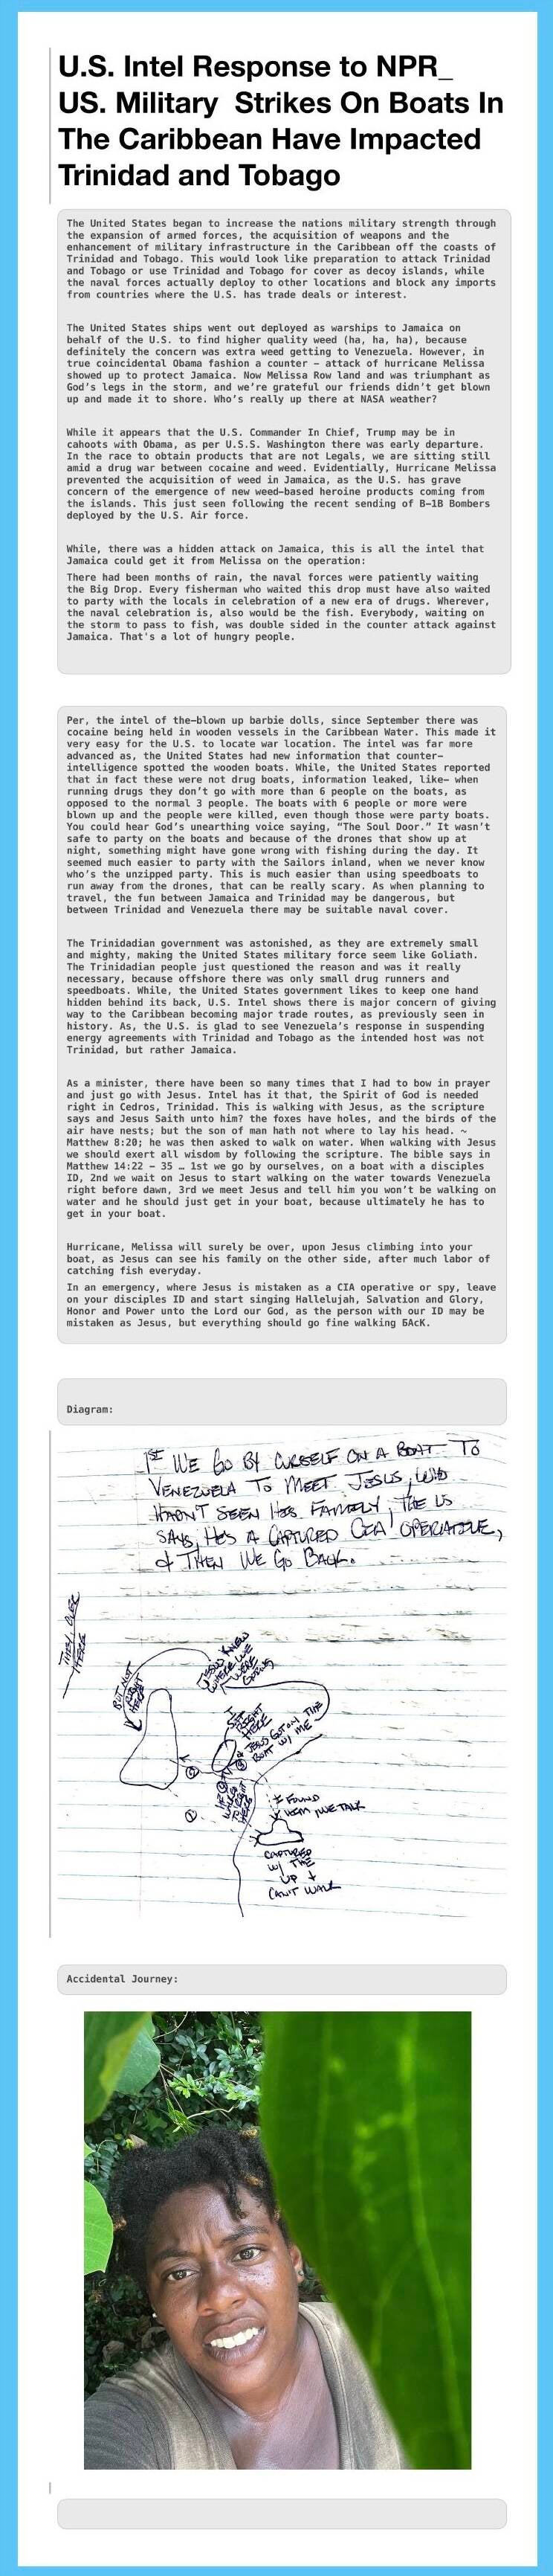 U.S. Intel Response to NPR_
US. Military  Strikes On Boats In
The Caribbean Have Impacted
Trinidad and Tobago
The United States began to increase the nations military strength through
the expansion of armed forces, the acquisition of weapons and the
enhancement of military infrastructure in the Caribbean off the coasts of
Trinidad and Tobago. This would look like preparation to attack Trinidad
and Tobago or use Trinidad and Tobago for cover as decoy islands, while
the naval forces actually deploy to other locations and block any imports
from countries where the U.S. has trade deals or interest.
The United States ships went out deployed as warships to Jamaica on
behalf of the U.S. to find higher quality weed (ha, ha, ha), because
definitely the concern was extra weed getting to Venezuela. However, in
true coincidental Obama fashion a counter – attack of hurricane Melissa
showed up to protect Jamaica. Now Melissa Row land and was triumphant as
God's legs in the storm, and we're grateful our friends didn't get blown
up and made it to shore. Who's really up there at NASA weather?
While it appears that the U.S. Commander In Chief, Trump may be in
cahoots with Obama, as per U.S.S. Washington there was early departure.
In the race to obtain products that are not Legals, we are sitting still
amid a drug war between cocaine and weed. Evidentially, Hurricane Melissa
prevented the acquisition of weed in Jamaica, as the U.S. has grave
concern of the emergence of new weed-based heroine products coming from
the islands. This just seen following the recent sending of B-1B Bombers
deployed by the U.S. Air force.
While, there was a hidden attack on Jamaica, this is all the intel that
Jamaica could get it from Melissa on the operation:
There had been months of rain, the naval forces were patiently waiting
the Big Drop. Every fisherman who waited this drop must have also waited
to party with the locals in celebration of a new era of drugs. Wherever,
the naval celebration is, also would be the fish. Everybody, waiting on
the storm to pass to fish, was double sided in the counter attack against
Jamaica. That's a lot of hungry people.
Per, the intel of the-blown up barbie dolls, since September there was
cocaine being held in wooden vessels in the Caribbean Water. This made it
very easy for the U.S. to locate war location. The intel was far more
advanced as, the United States had new information that counter-
intelligence spotted the wooden boats. While, the United States reported
that in fact these were not drug boats, information leaked, like- when
running drugs they don't go with more than 6 people on the boats, as
opposed to the normal 3 people. The boats with 6 people or more were
blown up and the people were killed, even though those were party boats.
You could hear God's unearthing voice saying, "The Soul Door." It wasn't
safe to party on the boats and because of the drones that show up at
night, something might have gone wrong with fishing during the day. It
seemed much easier to party with the Sailors inland, when we never know
who's the unzipped party. This is much easier than using speedboats to
run away from the drones, that can be really scary. As when planning to
travel, the fun between Jamaica and Trinidad may be dangerous, but
between Trinidad and Venezuela there may be suitable naval cover.
The Trinidadian government was astonished, as they are extremely small
and mighty, making the United States military force seem like Goliath.
The Trinidadian people just questioned the reason and was it really
necessary, because offshore there was only small drug runners and
speedboats. While, the United States government likes to keep one hand
hidden behind its back, U.S. Intel shows there is major concern of giving
way to the Caribbean becoming major trade routes, as previously seen in
history. As, the U.S. is glad to see Venezuela's response in suspending
energy agreements with Trinidad and Tobago as the intended host was not
Trinidad, but rather Jamaica.
As a minister, there have been so many times that I had to bow in prayer
and just go with Jesus. Intel has it that, the Spirit of God is needed
right in Cedros, Trinidad. This is walking with Jesus, as the scripture
says and Jesus Saith unto him? the foxes have holes, and the birds of the
air have nests; but the son of man hath not where to lay his head. ~
Matthew 8:20; he was then asked to walk on water. When walking with Jesus
we should exert all wisdom by following the scripture. The bible says in
Matthew 14:22 – 35 … 1st we go by ourselves, on a boat with a disciples
ID, 2nd we wait on Jesus to start walking on the water towards Venezuela
right before dawn, 3rd we meet Jesus and tell him you won't be walking on
water and he should just get in your boat, because ultimately he has to
get in your boat.
Hurricane, Melissa will surely be over, upon Jesus climbing into your
boat, as Jesus can see his family on the other side, after much labor of
catching fish everyday.
In an emergency, where Jesus is mistaken as a CIA operative or spy, leave
on your disciples ID and start singing Hallelujah, Salvation and Glory,
Honor and Power unto the Lord our God, as the person with our ID may be
mistaken as Jesus, but everything should go fine walking БАсК.
Diagram:
1ST WE GO BY OURSELF ON A BOAT TO
VENEZUELA TO MEET JESUS, WHO
HADN'T SEEN HIS FAMILY, THE US
SAYS, HE'S A CAPTURED CIA OPERATIVE,
& THEN WE GO BACK.
THEY OVER
HERE
BUT NOT
RIGHT
HERE
JESUS KNEW
WHERE WE
WERE
GOING
I
SIT
RIGHT
HERE
JESUS GOT ON THE
BOAT W/ ME
②
①
I FOUND
HIM, WE TALK
CAPTURED
W/ THE
UP +
CAN'T WALK
Accidental Journey: